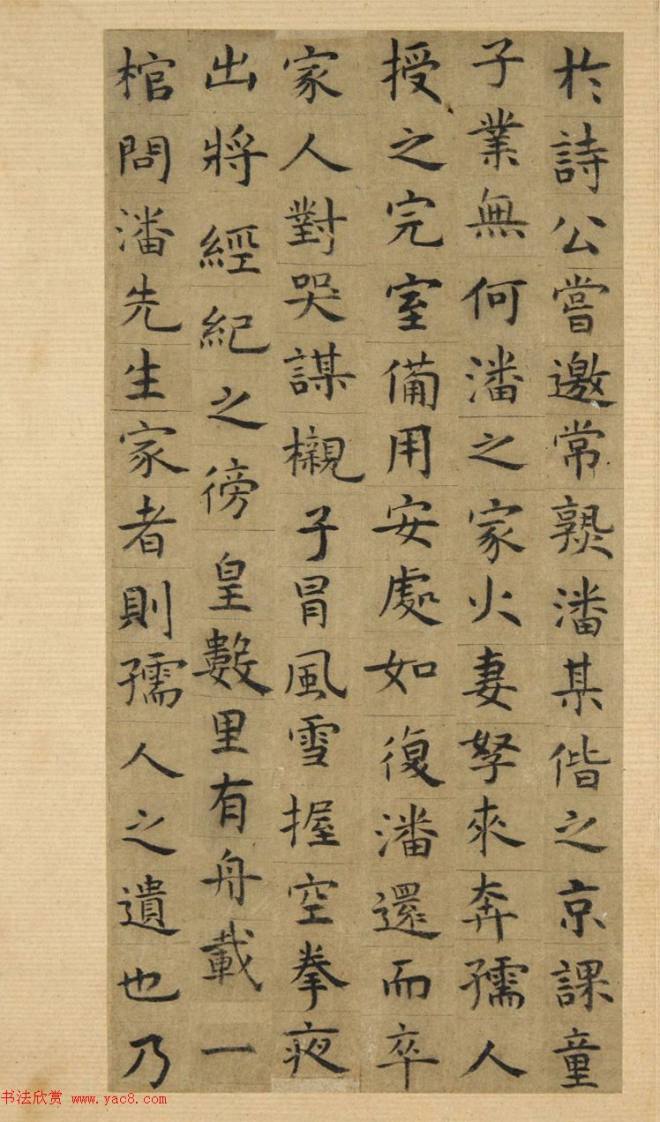 於詩公嘗邀常熟潘某偕之京課童
子業無何潘之家火妻孥來奔孺人
授之完室備用安處如復潘還而卒
家人對哭謀櫬子冒風雪握空拳夜
出將經紀之徬皇數里有舟載一
棺問潘先生家者則孺人之遺也乃
书法欣赏 www.yac8.com